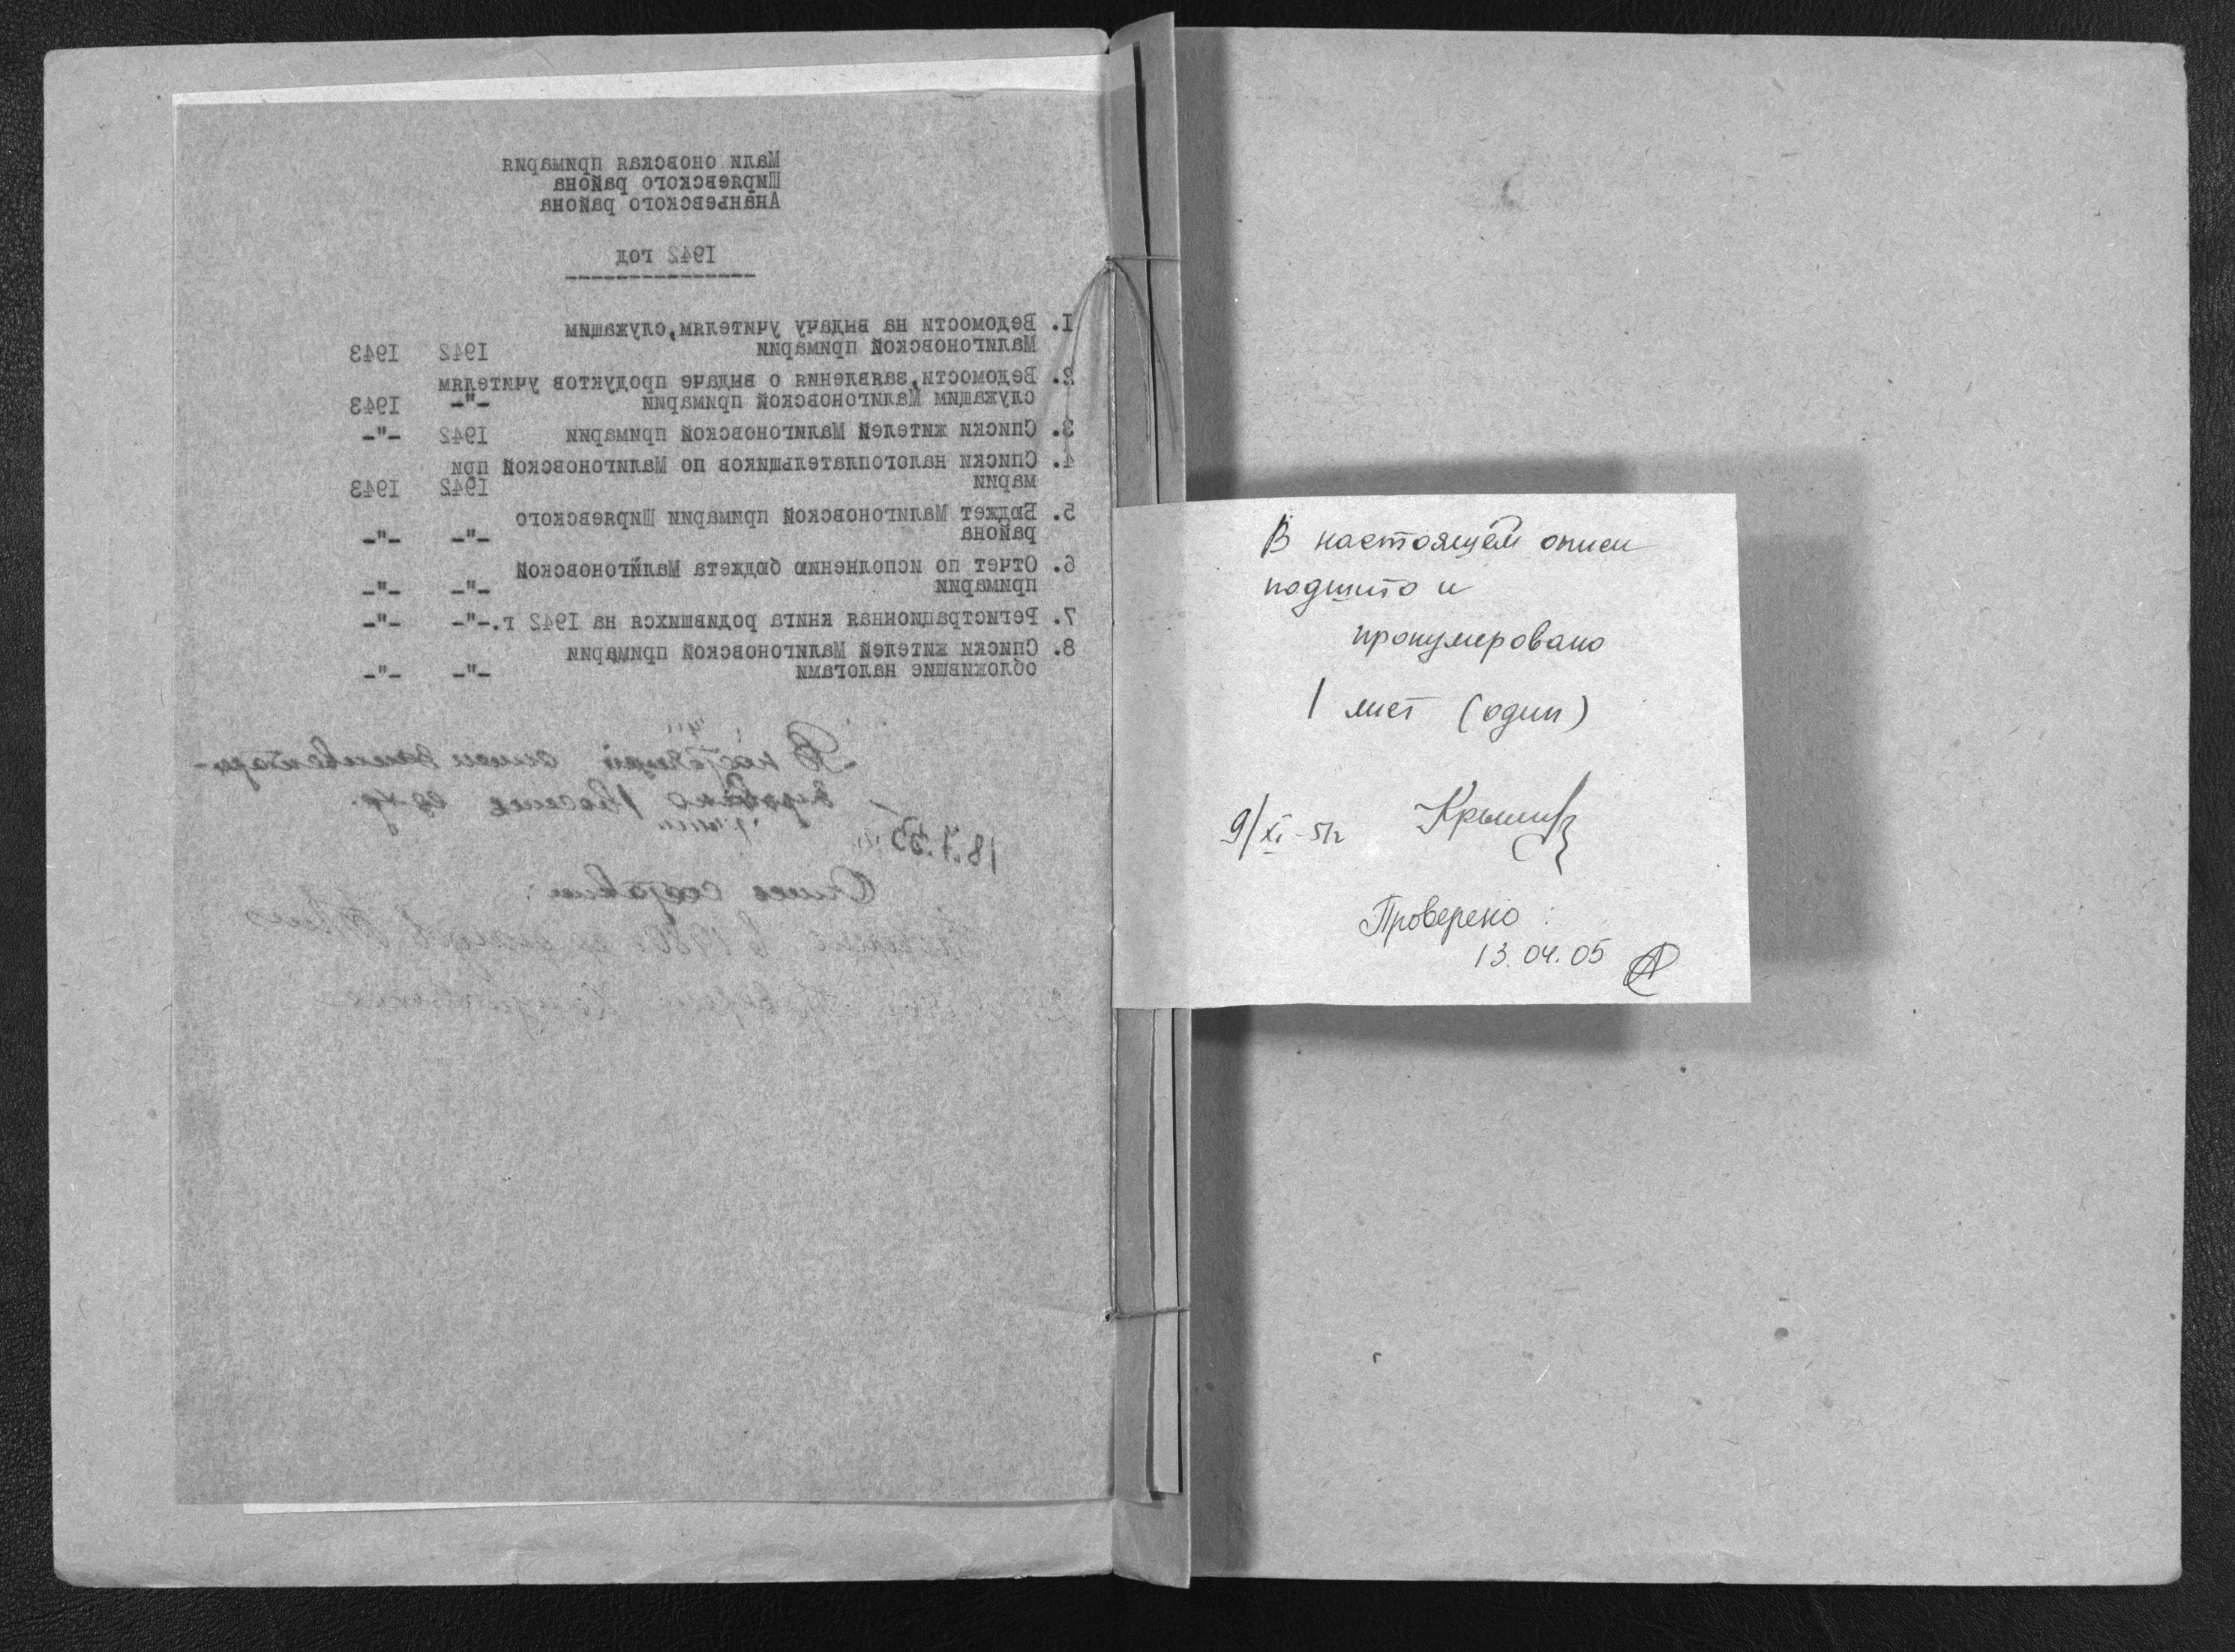 Мали оновская примария
Ширяевского района
Ананьевского района
1942 год
1. Ведомости на выдачу учителям,служащим
Малигоновской примарии 1942 1943
2. Ведомости,заявления о выдаче продуктов учителям
служащим Малигоновской примарии -"- 1943
3. Списки жителей Малигоновской примарии 1942 -"-
4. Списки налогоплательщиков по Малигоновской при
марии 1942 1943
5. Бюджет Малигоновской примарии Ширяевского
района -"- -"-
6. Отчет по исполнению бюджета Малигоновской
примарии -"- -"-
7. Регистрационная книга родившихся на 1942 г.-"- -"-
8. Списки жителей Малигоновской примарии
обложившие налогами -"- -"-
В настоящей описи
восемь ед. хр.
18.7.55
Опись составил:
В настоящей описи
подшито и
пронумеровано
1 лист (один)
9/XI-5
Проверено:
13.04.05